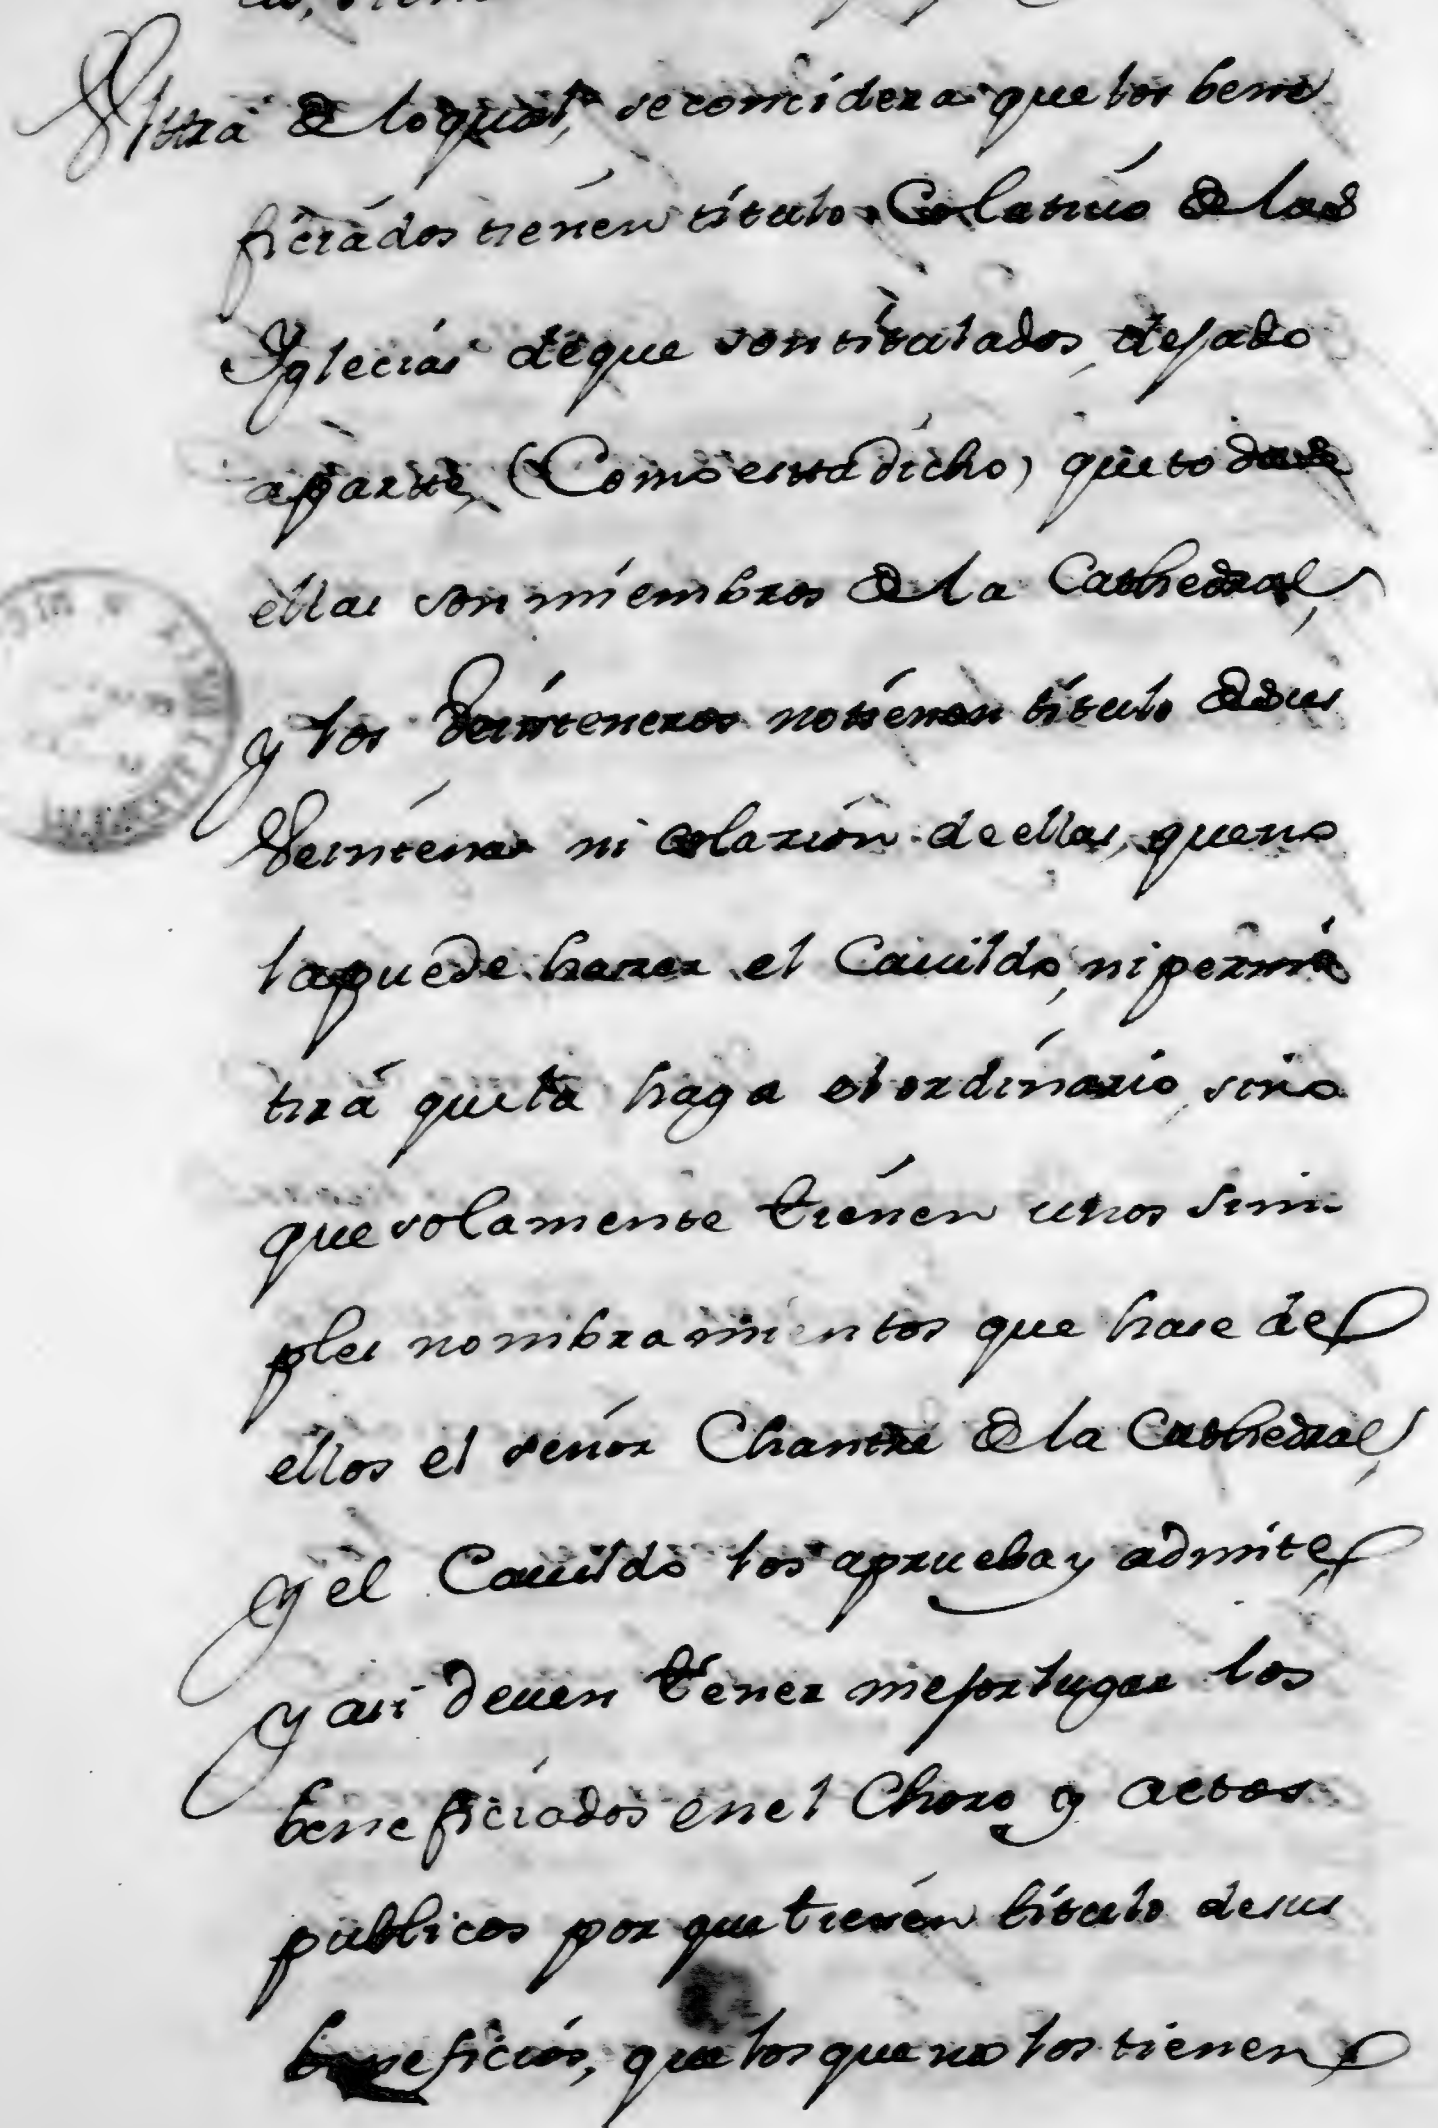 Vltra de lo qual, se concidera que los bene
ficiados tienen titulo Colatiuo de las
Yglecias de que son titulados, dejado
aparte, (Como esta dicho) que todas
ellas son miembros de la Cathedral,
y los Veinteneros no tienen titulo de sus
Veintenas ni colazion de ellas, que no
la puede hazer el Cauildo, ni permi
tirá que la haga el ordinario, sino
que solamente tienen unos sim-
ples nombramientos que hase de
ellos el señor Chantre de la Cathedral,
y el Cauildo los aprueba y admite,
y asi deuen tener mejor lugar los
beneficiados en el Choro, y actos
publicos por que tienen titulo de sus
beneficios, que los que no los tienen